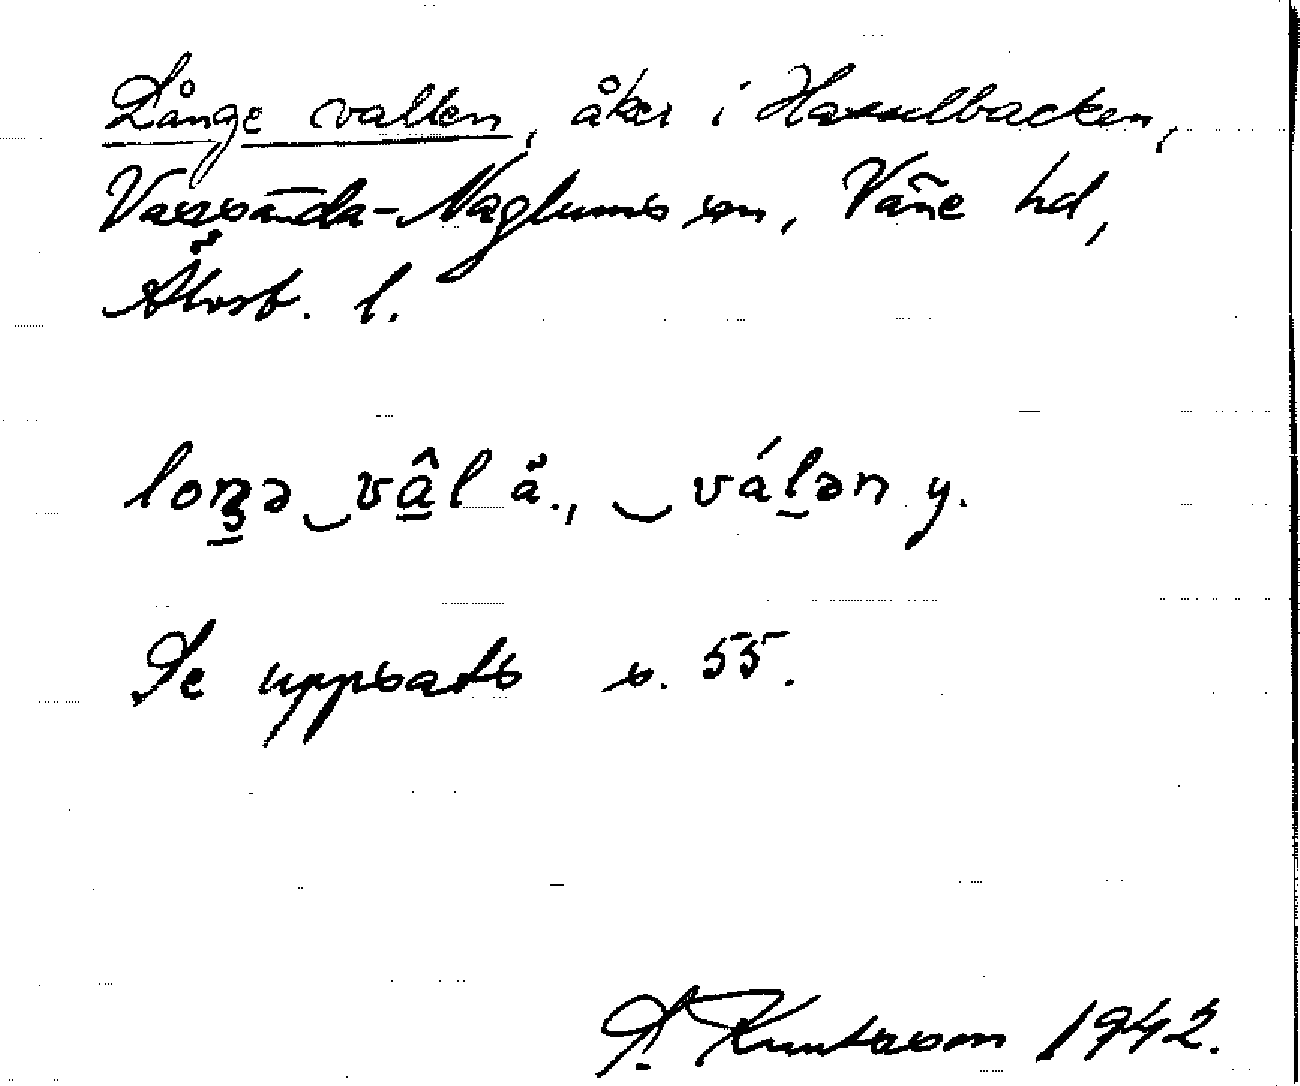 Långe vallen, åker i Hasselbacken,
Vassända-Naglums sn, Väne hd,
Älvsb. l.
loŋə‿vâl ä., ‿válən y.
Se uppsats s. 55.
S. Knutsson 1942.